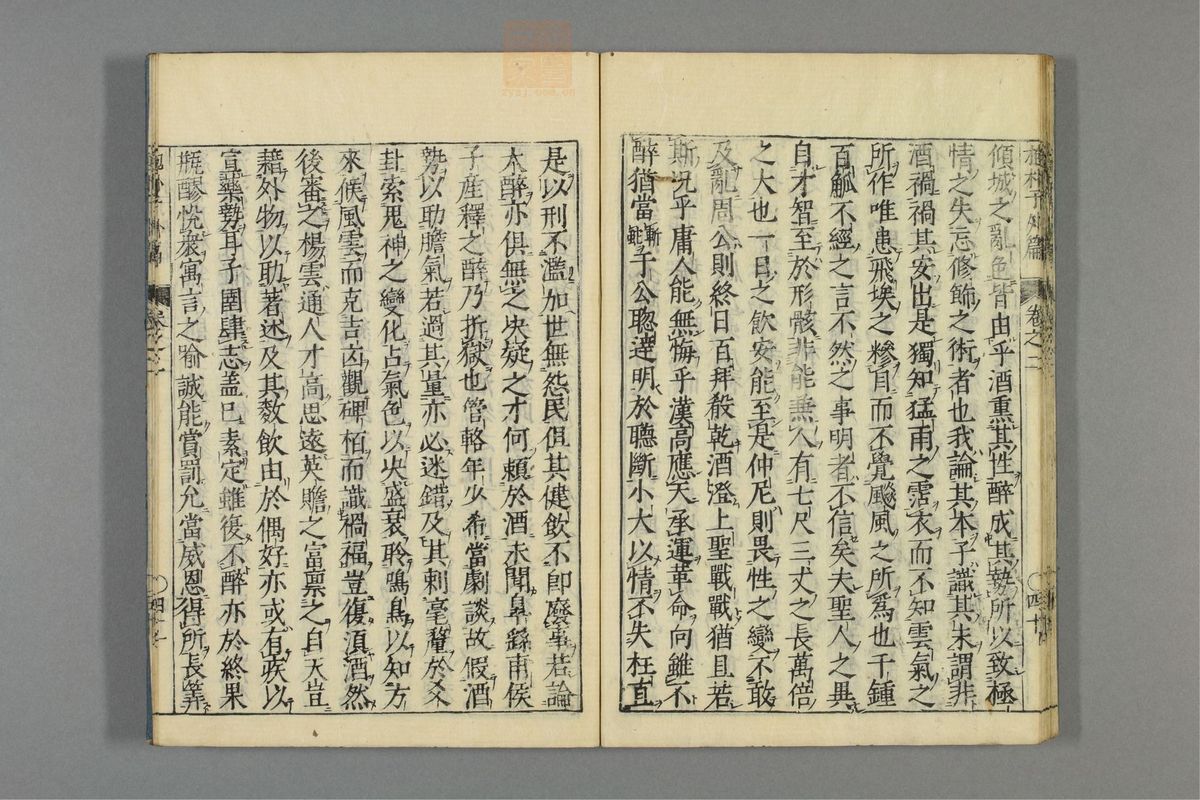 抱朴子外篇 卷之二 四十
傾城之亂色皆由乎酒熏其性醉成其勢所以致極
情之失忘修飾之術者也我論其本子識其末謂非
酒禍禍其安出是獨知猛雨之霑衣而不知雲氣之
所作唯患飛埃之糝目而不覺飈風之所為也千鍾
百觚不經之言不然之事明者不信矣夫聖人之異
自才智至於形骸非能兼人有七尺三丈之長萬倍
之大也一日之飲安能至是仲尼則畏性之變不敢
及亂周公則終日百拜殽乾酒澄上聖戰戰猶且若
斯況乎庸人能無悔乎漢高應天承運革命向雖不
醉猶當斬蛇于公聰達明於聽斷小大以情不失枉直
是以刑不濫加世無怨民但其健飲不即廢事若論
大醉亦俱無之決疑之才何賴於酒未聞皐繇甫侯
子產釋之醉乃折獄也管輅年少希當劇談故假酒
勢以助膽氣若過其量亦必迷錯及其剌毫釐於爻
卦索鬼神之變化占氣色以決盛衰聆鳴鳥以知方
來候風雲而克吉凶觀碑栢而識禍福豈復須酒然
後審之楊雲通人才高思遠英贍之富稟之自天豈
藉外物以助著述及其數飲由於偶好亦或有疾以
宣藥勢耳子圉肆志葢巳素定雖復不醉亦於終果
瓶醪悅衆寓言之喻誠能賞罰允當威恩得所長筭